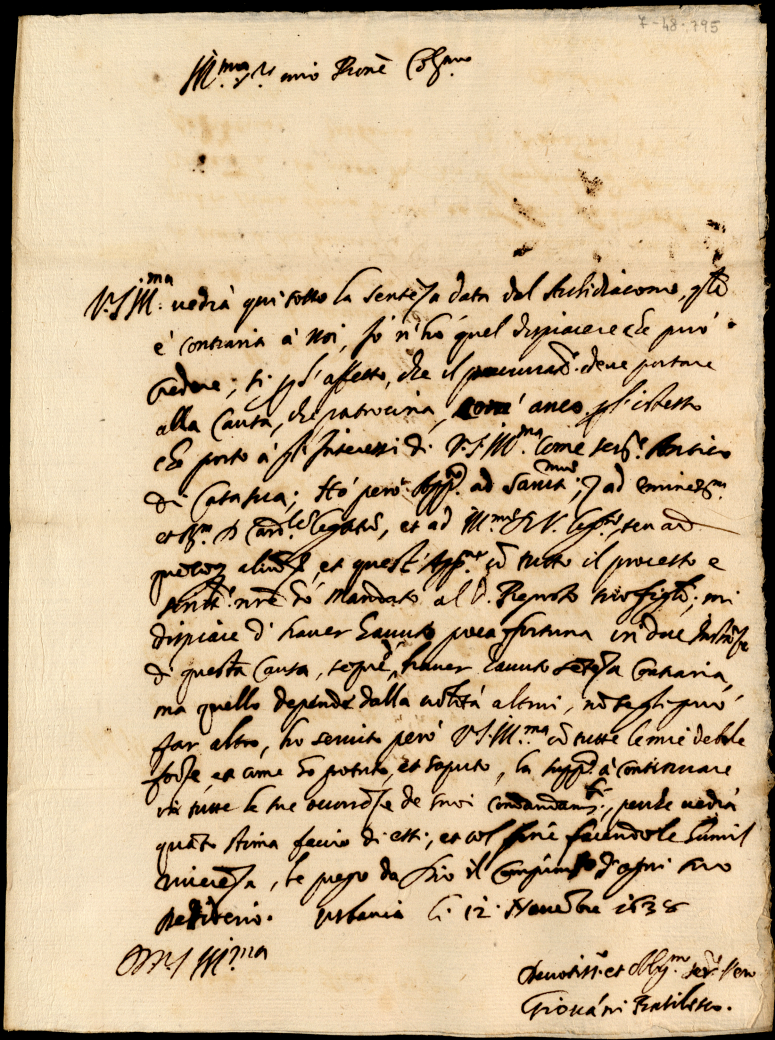 7-48-795
Ill.mo s.r mio Prone Col.mo
V.S Ill.ma vedrà qui sotto la sentẽza data dal Archidiacono, q̃le
è contraria à Noi, Io n'hò quel dispiacere che può
credere; si p̱ l'affetto, che il procurat.e deve portare
alla Causa, che patrocina, come anco p̱ l'istesso
che porto à gl'Interessi di V.S Ill.ma come ser.re Antico
di Casa sua; Hò però App.to ad Sanct.mum; ad eminẽtiss.m
et R.m D Card.lem Legatũ, et ad Ill.m seu ad
et quest'App.ne cõ tutto il processo e
hò Mandato al S. suo figl.o; mi
dispiace d'haver havuto poca fortuna in due Instãze
di questa Causa, haver havuto sentẽza Contraria,
ma quello depende dalla volõtà altrui, nõ segli può
far altro, hò servito però V.S Ill.ma cõ tutte le mie debole
forze, et come hò potuto, et saputo, la supp.co à continuare
in tutte le sue occorrẽze de suoi comandam.ti, perche vedrà
quãto stima faccio di essi, et col fine facendole humil
riverẽza, le prego da Dio il Compim.to d'ogni suo
desiderio. Urbania li 12 Novẽbre 1638
D V.S Ill.ma
Devotiss.o et Obblig.mo ser.re vero
Giovãni